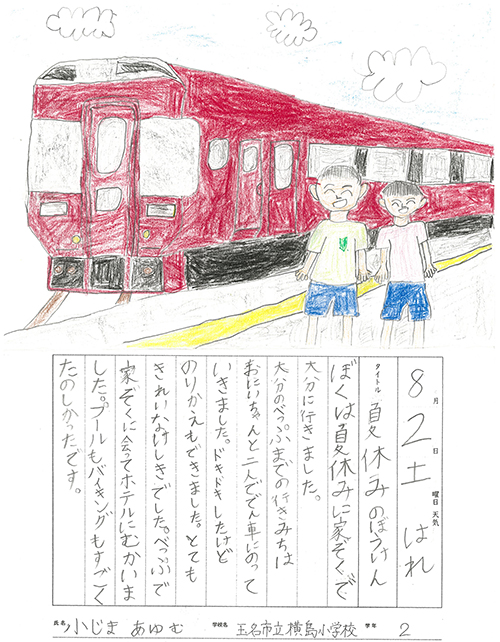 8月2日土曜日 天気 はれ
タイトル 夏休みのぼうけん
ぼくは夏休みに家ぞくで
大分に行きました。
大分のべっぷまでの行きみちは
おにいちゃんと二人ででん車にのって
いきました。ドキドキしたけど
のりかえもできました。とても
きれいなけしきでした。べっぷで
家ぞくに会ってホテルにむかいま
した。プールもバイキングもすごく
たのしかったです。
氏名 小じま あゆむ 学校名 玉名市立横島小学校 学年 2